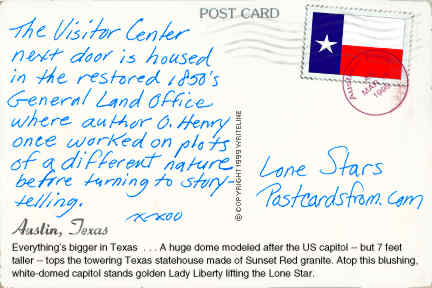 POST CARD
The Visitor Center
next door is housed
in the restored 1850's
General Land Office
where author O. Henry
once worked on plots
of a different nature
before turning to story-
telling.
xxoo
© COPYRIGHT 1999 WRITELINE
Lone Stars
Postcardsfrom.com
Austin, Texas
Everything's bigger in Texas . . . A huge dome modeled after the US capitol -- but 7 feet
taller -- tops the towering Texas statehouse made of Sunset Red granite. Atop this blushing,
white-domed capitol stands golden Lady Liberty lifting the Lone Star.